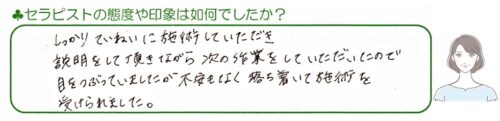 ♣セラピストの態度や印象は如何でしたか？
しっかりていねいに施術していただき
説明をして頂きながら次の作業をしていただいたので
目をつぶっていましたが不安もなく落ち着いて施術を
受けられました。